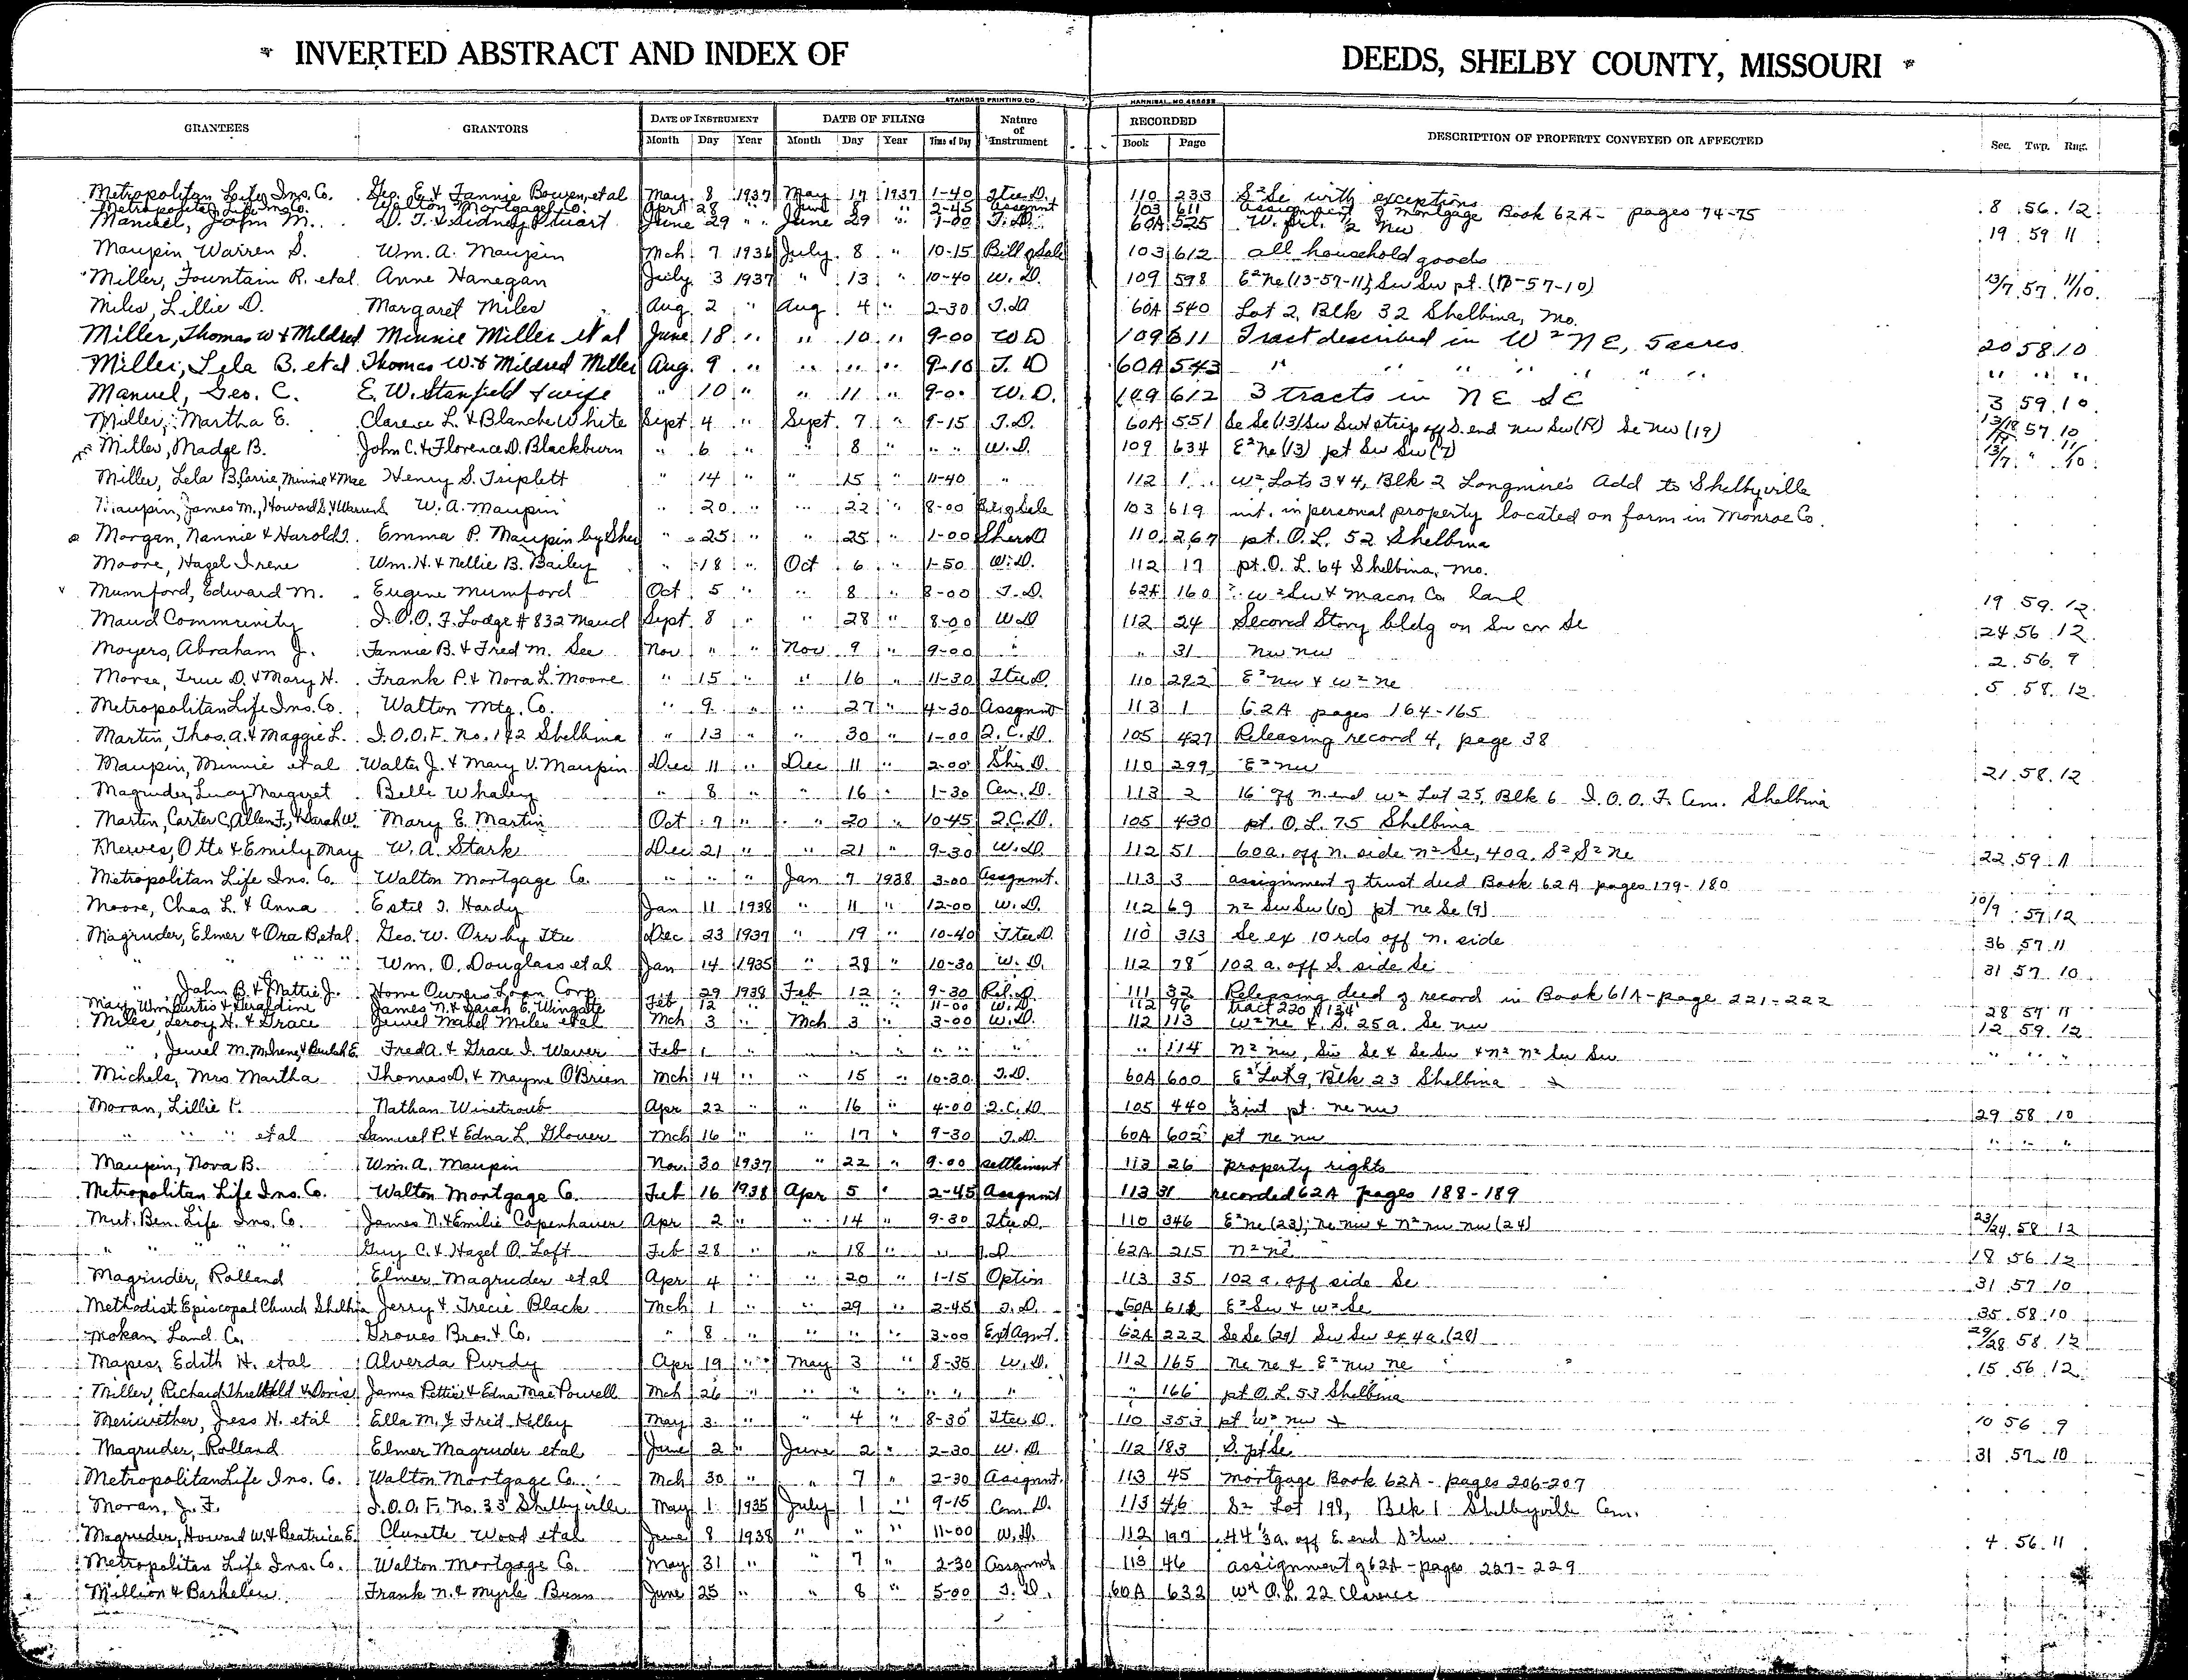 INVERTED ABSTRACT AND INDEX OF DEEDS, SHELBY COUNTY, MISSOURI
STANDARD PRINTING CO. HANNIBAL, MO.
GRANTEES GRANTORS DATE OF INSTRUMENT DATE OF FILING Nature of Instrument RECORDED DESCRIPTION OF PROPERTY CONVEYED OR AFFECTED Sec. Twp. Rng.
Month Day Year Month Day Year Time of Day Book Page
Metropolitan Life Ins. Co. Geo. E. & Fannie Bowen, et al May 8 1937 May 17 1937 1-40 Ttee D. 110 233 S² Se with exceptions 8 56 12
Metropolitan Life Ins Co. Walton Mortgage Co. Apri 28 " June " 2-45 Assgnmt 103 611 Assignment of Mortgage Book 62A - pages 74-75
Manuel, John M. D. T. & Sidney Stuart June 29 " June 29 " 1-00 T. D. 60A 525 W. 1/2 nw 19 59 11
Maupin, Warren S. Wm. A. Maupin Mch 7 1936 July 8 " 10-15 Bill of Sale 103 612 all household goods
Miller, Fountain R. et al Anne Hanegan July 3 1937 " 13 " 10-40 W. D. 109 598 E² Ne (13-57-11) Sw Sw pt. (7-57-10) 13/7 57 11/10
Miles, Lillie D. Margaret Miles Aug 2 " Aug 4 " 2-30 T. D 60A 540 Lot 2, Blk 32 Shelbina, Mo.
Miller, Thomas W & Mildred Minnie Miller et al June 18 " " 10 " 9-00 W D 109 611 Tract described in W² NE, 5 acres 20 58 10
Miller, Lela B. et al Thomas W. & Mildred Miller Aug. 9 " " " " 9-10 T. D 60A 543 " " " " " " " " "
Manuel, Geo. C. E. W. Stanfield & wife " 10 " " 11 " 9-0. W. D. 109 612 3 tracts in NE SE 3 59 10
Miller, Martha E. Clarence L. & Blanche White Sept 4 " Sept. 7 " 9-15 T. D. 60A 551 Se Se (13) Sw Sw & strip off S. end nw Sw (18) Se nw (19) 57 10
Miller, Madge B. John C. & Florence D. Blackburn " 6 " " 8 " " " W. D. 109 634 E² Ne (13) pt Sw Sw (7) 13/7 " 11/10
Miller, Lela B, Carrie, Minnie & Mae Henry S. Triplett " 14 " " 15 " 11-40 " 112 1 W² Lots 3 & 4, Blk 2 Longmire's Add to Shelbyville
Maupin, James M., Howard S. & Warren S W. A. Maupin " 20 " " 22 " 8-00 Bill of Sale 103 619 int. in personal property located on farm in Monroe Co.
Morgan, Nannie & Harold Emma P. Maupin by Sher " 25 " " 25 " 1-00 Sher D 110 267 pt. O. L. 52 Shelbina
Moore, Hazel Irene Wm. H. & Nellie B. Bailey " 18 " Oct 6 " 1-50 W. D. 112 17 pt. O. L. 64 Shelbina, Mo.
Mumford, Edward M. Eugene Mumford Oct 5 " " 8 " 8-00 T. D. 62A 160 W² Sw & Macon Co land 19 59 12
Maud Community I. O. O. F. Lodge # 832 Maud Sept. 8 " " 28 " 8-00 W D 112 24 Second Story bldg on Sw cor Se 24 56 12
Moyers, Abraham J. Fannie B. & Fred M. See Nov " " Nov 9 " 9-00 " " 31 nw nw 2 56 9
Morse, True D. & Mary H. Frank P. & Nora L. Moore " 15 " " 16 " 11-30 Ttee D. 110 292 E² nw & w² ne 5 58 12
Metropolitan Life Ins. Co. Walton Mtg. Co. " 9 " " 27 " 4-30 Assgnmt 113 1 62A pages 164-165
Martin, Thos. A. & Maggie L. I. O. O. F. No. 142 Shelbina " 13 " " 30 " 1-00 Q. C. D. 105 427 Releasing record 4, page 38
Maupin, Minnie et al Walter J. & Mary V. Maupin Dec 11 " Dec 11 " 2-00 Shr. D. 110 299 E² nw 21 58 12
Magruder, Lucy Margaret Belle Whaley " 8 " " 16 " 1-30 Cem. D. 113 2 16' off n. end w² Lot 25, Blk 6 I. O. O. F. Cem. Shelbina
Martin, Carter C, Allen F., & Sarah W. Mary E. Martin Oct 7 " " 20 " 10-45 Q. C. D. 105 430 pt. O. L. 75 Shelbina
Merves, Otto & Emily May W. A. Stark Dec 21 " " 21 " 9-30 W. D. 112 51 60 a. off n. side n² Se, 40 a. S² S² ne 22 59 11
Metropolitan Life Ins. Co. Walton Mortgage Co. " " " Jan 7 1938 3-00 Assgnmt. 113 3 assignment of trust deed Book 62A pages 179-180
Moore, Chas L. & Anna Estel I. Hardy Jan 11 1938 " 11 " 12-00 W. D. 112 69 n² Sw Sw (10) pt ne Se (9) 10/9 57 12
Magruder, Elmer & Ora B. et al Geo. W. Orr by Ttee Dec 23 1937 " 19 " 10-40 Ttee D. 110 313 Se ex 10 rds off n. side 36 57 11
" " " " Wm. O. Douglass et al Jan 14 1935 " 28 " 10-30 W. D. 112 78 102 a. off S. side Se 31 57 10
" John B. & Mattie J. Home Owners Loan Corp " 29 1938 Feb 12 " 9-30 Rel. D. 111 32 Releasing deed of record in Book 61A - page 221-222
May, Wm Curtis & Geraldine James N. & Sarah E. Wingate Feb 12 " " " 11-00 W. D. 112 96 tract 220 X 134 28 57 11
Miles, Leroy H. & Grace Jewel Mabel Miles et al Mch 3 " Mch 3 " 3-00 W. D. 112 113 W² ne & S. 25 a. Se nw 12 59 12
", Jewel M. M. Irene & Beulah E. Fred A. & Grace I. Weaver Feb 1 " " " " " " " " 114 n² nw, Sw Se & Se Sw & n² n² Sw Sw " " "
Michels, Mrs Martha Thomas D. & Mayme O'Brien Mch 14 " " 15 " 10-30 T. D. 60A 600 E² Lot 9, Blk 23 Shelbina
Moran, Lillie P. Nathan Winetroub Apr 22 " " 16 " 4-00 Q. C. D 105 440 1/3 int pt. ne nw 29 58 10
" " " et al Samuel P. & Edna L. Glover Mch 16 " " 17 " 9-30 T. D. 60A 602 pt ne nw " " "
Maupin, Nova B. Wm. A. Maupin Nov. 30 1937 " 22 " 9-00 settlement 113 26 property rights
Metropolitan Life Ins. Co. Walton Mortgage Co. Feb 16 1938 Apr 5 " 2-45 Assgnmt 113 31 recorded 62A pages 188-189
Mut. Ben. Life Ins. Co. James N. & Emilie Copenhaver Apr 2 " " 14 " 9-30 Ttee D. 110 346 E² ne (23); ne nw & n² nw nw (24) 23/24 58 12
" " " " Guy C. & Hazel O. Loft Feb 28 " " 18 " " T. D. 62A 215 n² ne 18 56 12
Magruder, Rolland Elmer Magruder et al Apr 4 " " 20 " 1-15 Option 113 35 102 a. off side Se 31 57 10
Methodist Episcopal Church Shelbina Jerry & Trecie Black Mch 1 " " 29 " 2-45 T. D. 60A 612 E² Sw & w² Se 35 58 10
Mokan Land Co. Groves Bros. & Co. " 8 " " " 3-00 Ext Agmt. 62A 222 Se Se (29) Sw Sw ex 4 a. (28) 29/28 58 12
Mapes, Edith H. et al Alverda Purdy Apr 19 " May 3 " 8-35 W. D. 112 165 ne ne & E² nw ne 15 56 12
Miller, Richard Threlkeld & Doris James Pettis & Edna Mae Powell Mch 26 " " " " " " " " 166 pt O. L. 53 Shelbina
Meriwether, Jess H. et al Ella M. & Fred Kelley May 3 " " 4 " 8-30 Ttee D. 110 353 pt w² nw 10 56 9
Magruder, Rolland Elmer Magruder et al June 2 " June 2 " 2-30 W. D. 112 183 S. pt Se 31 57 10
Metropolitan Life Ins. Co. Walton Mortgage Co. Mch 30 " " 7 " 2-30 Assgnmt. 113 45 Mortgage Book 62A - pages 206-207
Moran, J. F. I. O. O. F. No. 33 Shelbyville May 1 1935 July 1 " 9-15 Cem. D. 113 46 S² Lot 198, Blk 1 Shelbyville Cem.
Magruder, Howard W. & Beatrice E. Clunette Wood et al June 8 1938 " " " 11-00 W. D. 112 197 44 1/3 a. off E end S² Sw 4 56 11
Metropolitan Life Ins. Co. Walton Mortgage Co. May 31 " " 7 " 2-30 Assgnmt 113 46 assignment of 62A - pages 227-229
Million & Barkelew Frank N. & Myrle Bunn June 25 " " 8 " 5-00 T. D. 60A 632 O. L. 22 Clarence